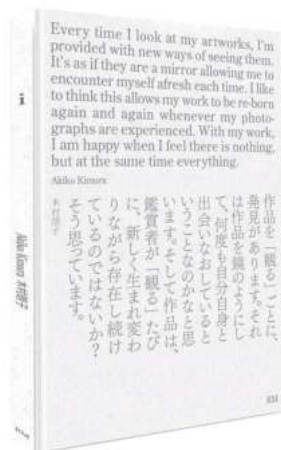 Every time I look at my artworks, I'm
provided with new ways of seeing them.
It's as if they are a mirror allowing me to
encounter myself afresh each time. I like
to think this allows my work to be re-born
again and again whenever my photo-
graphs are experienced. With my work,
I am happy when I feel there is nothing,
but at the same time everything.
Akiko Kimura
作品を「観る」ごとに、
発見があります。それ
は作品を鏡のようにし
て、何度も自分自身と
出会いなおしていると
いうことなのかなと思
います。そして作品は、
鑑賞者が「観る」たび
に、新しく生まれ変わ
りながら存在し続け
ているのではないか?
そう思っています。
木村朗子
RM
i
Akiko Kimura 木村朗子